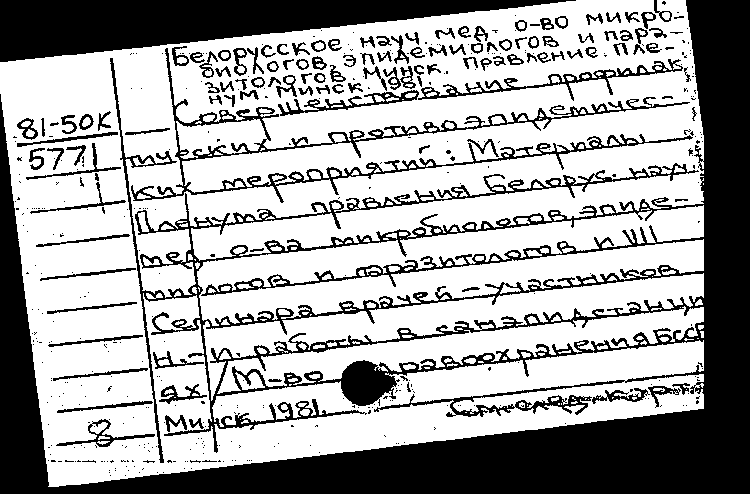 Белорусское науч. мед. о-во микро-
биологов, эпидемиологов и пара-
зитологов. Минск. Правление. Пле-
нум. Минск. 1981.
81-50к
5771
Совершенствование профилак
тических и противоэпидемичес-
ких мероприятий: Материалы
Пленума правления Белорус. науч.
мед. о-ва микробиологов, эпиде-
миологов и паразитологов и VIII
Семинара врачей - участников
н.-и. работы в санэпидстанци
ях / М-во дравоохранения БССР
Минск, 1981.
8
См. след. карт